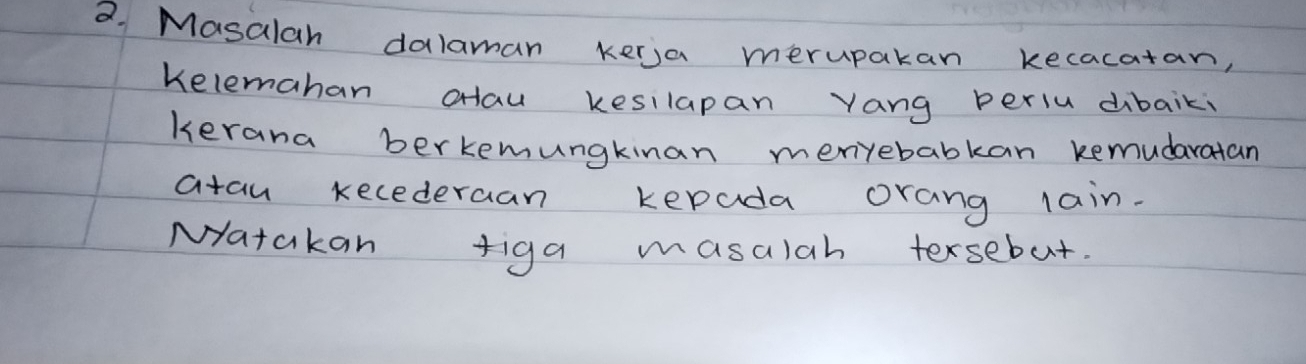 2. Masalah dalaman kerja merupakan kecacatan,
Kelemahan atau kesilapan yang perlu dibaiki
kerana berkemungkinan menyebabkan kemudaratan
atau kecederaan kepada orang lain.
Nyatakan tiga masalah tersebut.